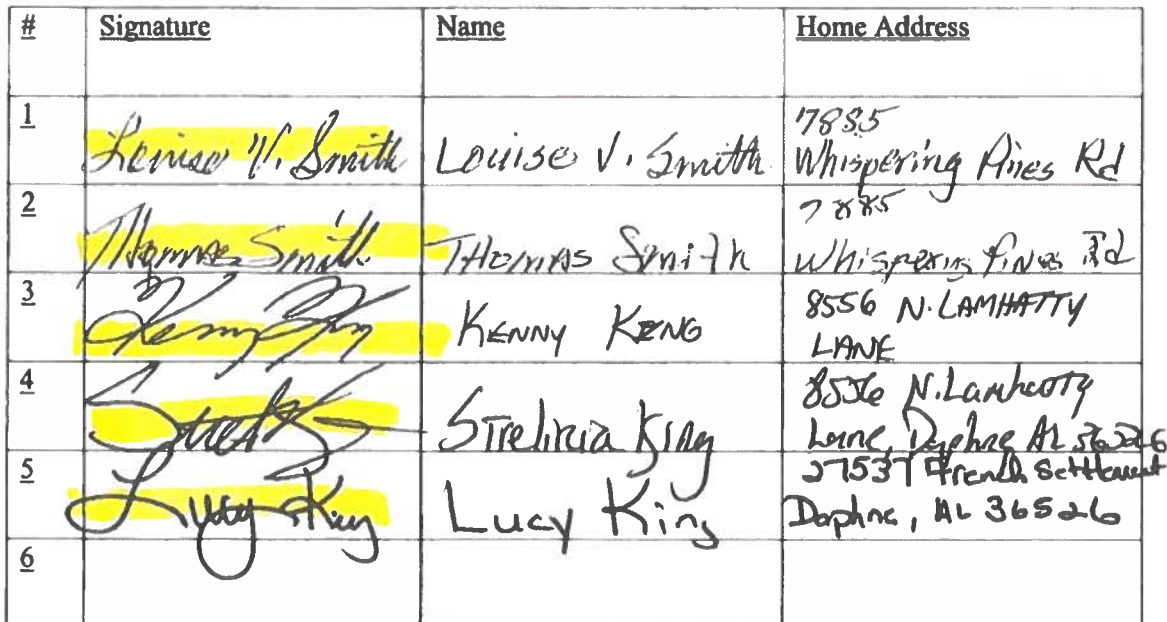 # Signature Name Home Address
1 Louise V. Smith Louise V. Smith 7885
Whispering Pines Rd
2 Thomas Smith THOMAS Smith 7885
Whispering Pines Rd
3 Kenny King KENNY KING 8556 N. LAMHATTY
LANE
4 Strelizia King 8556 N. Lamhatty
Lane, Daphne AL 36526
5 Lucy King Lucy King 27537 French Settlement
Daphne, AL 36526
6